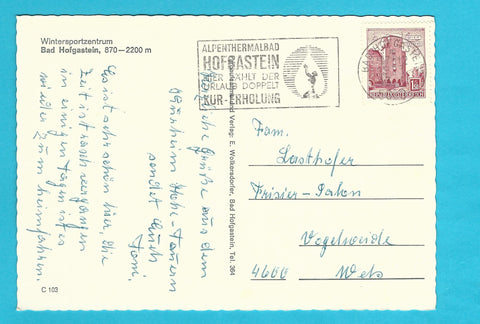 Wintersportzentrum
Bad Hofgastein, 870—2200 m
Es ist sehr schön hier, die
Zeit ist rasch vergangen
in einigen Tagen ist es
wieder zum heimfahren.
Herzliche Grüße aus dem
Hohe-Tauern
sendet Euch
Toni.
C 103
Verlag: E. Wolkersdorfer, Bad Hofgastein, Tel. 364
ALPENTHERMALBAD
HOFGASTEIN
HIER ZÄHLT DER
URLAUB DOPPELT
KUR-ERHOLUNG
BAD HOFGASTEIN
REPUBLIK ÖSTERREICH
Fam.
Lasthofer
Frisier-Salon
Vogelweide
4600 Wels